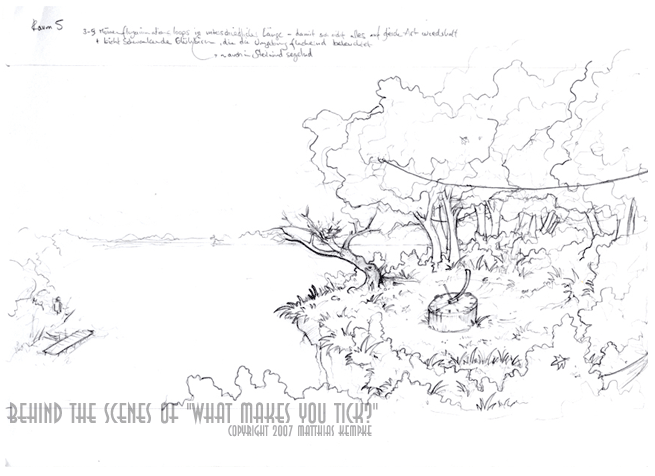 Raum 5
3-5 Möwenfluganimations loops in unterschiedlicher Länge - damit sie nicht alles auf gleiche Art
+ leicht schwankende Glühbirnen, die die Umgebung flackernd beleuchten
BEHIND THE SCENES OF "WHAT MAKES YOU TICK?"
COPYRIGHT 2007 MATTHIAS KEMPKE